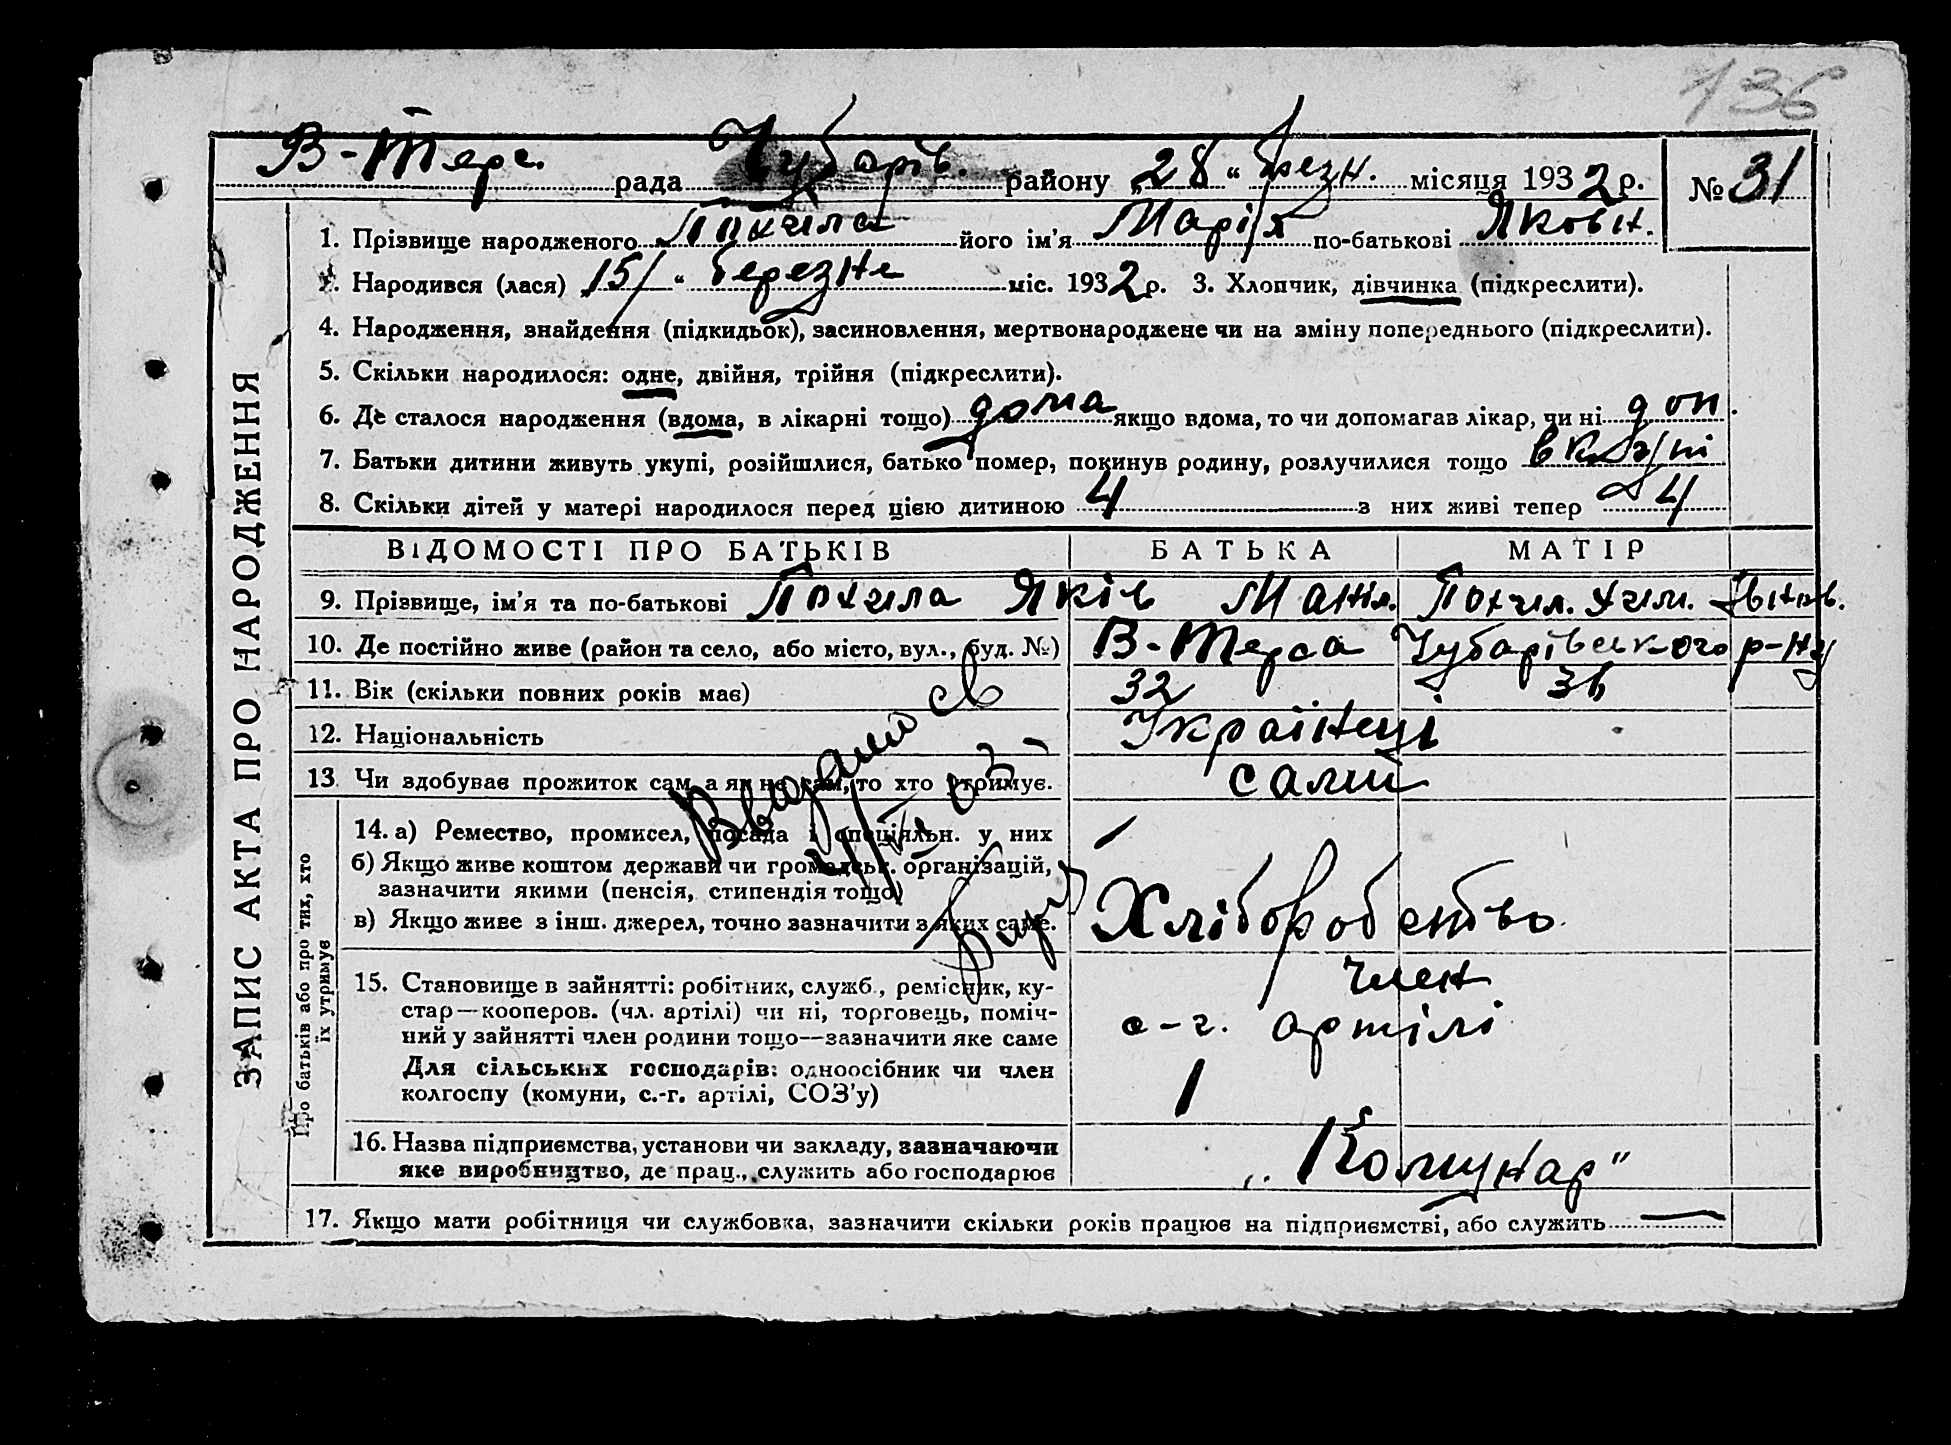 136
В-Терс. рада Чубарів. району „28“ березн. місяця 1932 р. № 31
ЗАПИС АКТА ПРО НАРОДЖЕННЯ
1. Прізвище народженого Похила його ім’я Марія по-батькові Яковн.
Народився (лася) 15 “ березня міс. 1932 р. 3. Хлопчик, дівчинка (підкреслити).
4. Народження, знайдення (підкидьок), засиновлення, мертвонароджене чи на зміну попереднього (підкреслити).
5. Скільки народилося: одне, двійня, трійня (підкреслити).
6. Де сталося народження (вдома, в лікарні тощо) дома якщо вдома, то чи допомагав лікар, чи ні доп.
7. Батьки дитини живуть укупі, розійшлися, батько помер, покинув родину, розлучилися тощо вкупі
8. Скільки дітей у матері народилося перед цією дитиною 4 з них живі тепер 4
ВІДОМОСТІ ПРО БАТЬКІВ БАТЬКА МАТІР
9. Прізвище, ім’я та по-батькові Похила Яків Маніл. Похил. Хим. Іванов.
10. Де постійно живе (район та село, або місто, вул., буд. №) В-Терса Чубарівського р-ну
11. Вік (скільки повних років має) 32
12. Національність Українеці
13. Чи здобуває прожиток сам, а як не сам, то хто утримує. самі
Про батьків або про тих, хто їх утримує
14. а) Ремество, промисел, посада і спеціяльн. у них
б) Якщо живе коштом держави чи громадськ. організацій,
зазначити якими (пенсія, стипендія тощо)
в) Якщо живе з інш. джерел, точно зазначити з яких саме. Хліборобство
15. Становище в зайнятті: робітник, служб., ремісник, ку-
член
стар—кооперов. (чл. артілі) чи ні, торговець, поміч-
с-г. артілі
ний у зайнятті член родини тощо—зазначити яке саме
Для сільських господарів: одноосібник чи член
колгоспу (комуни, с.-г. артілі, СОЗ’у)
16. Назва підприємства, установи чи закладу, зазначаючи
яке виробництво, де прац., служить або господарює „Комунар“
17. Якщо мати робітниця чи службовка, зазначити скільки років працює на підприємстві, або служить —